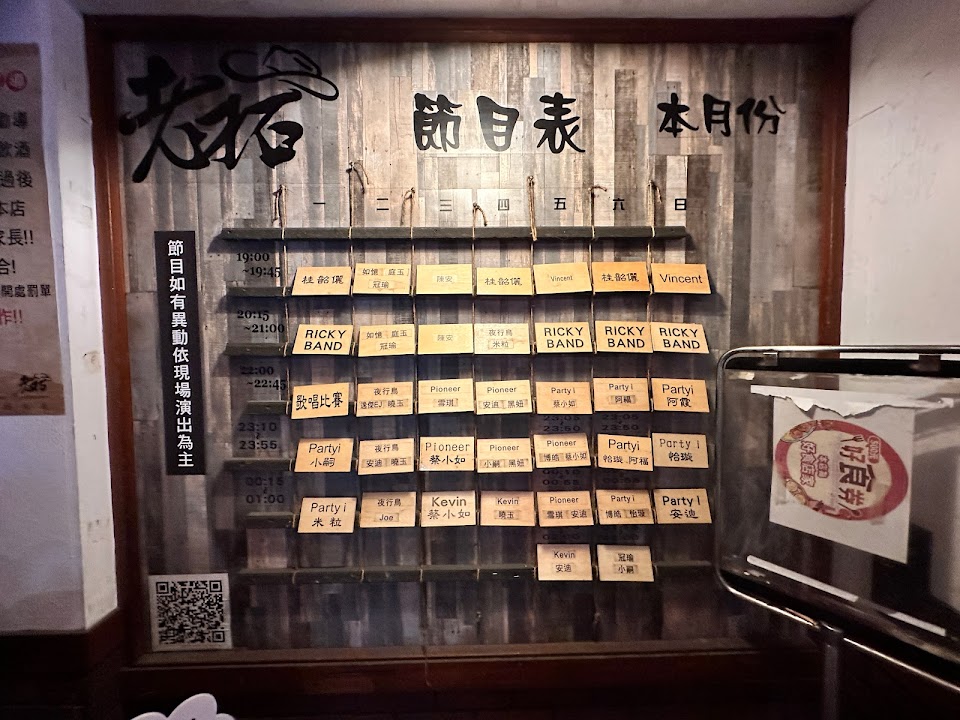 老拓
節目表 本月份
一 二 三 四 五 六 日
節目如有異動依現場演出為主
19:00
~19:45
桂韶儷
如憶 庭玉
冠瑜
陳安
桂韶儷
Vincent
桂韶儷
Vincent
20:15
~21:00
RICKY
BAND
如憶 庭玉
冠瑜
陳安
夜行鳥
米粒
RICKY
BAND
RICKY
BAND
RICKY
BAND
22:00
~22:45
歌唱比賽
夜行鳥
曉玉
Pioneer
雪琪
Pioneer
安迪 黑妞
Partyi
蔡小如
Partyi
阿福
Partyi
阿霞
23:10
23:55
Partyi
小嗣
夜行鳥
安迪 曉玉
Pioneer
蔡小如
Pioneer
小嗣 黑妞
Pioneer
博皓 蔡小如
Partyi
怡璇 阿福
Partyi
怡璇
00:15
01:00
Partyi
米粒
夜行鳥
Joe
Kevin
蔡小如
Kevin
曉玉
Pioneer
雪琪 安迪
Partyi
博皓 怡璇
Partyi
安迪
Kevin
安迪
冠瑜
小嗣
飲酒
過後
本店
家長!!
開處罰單
好食券